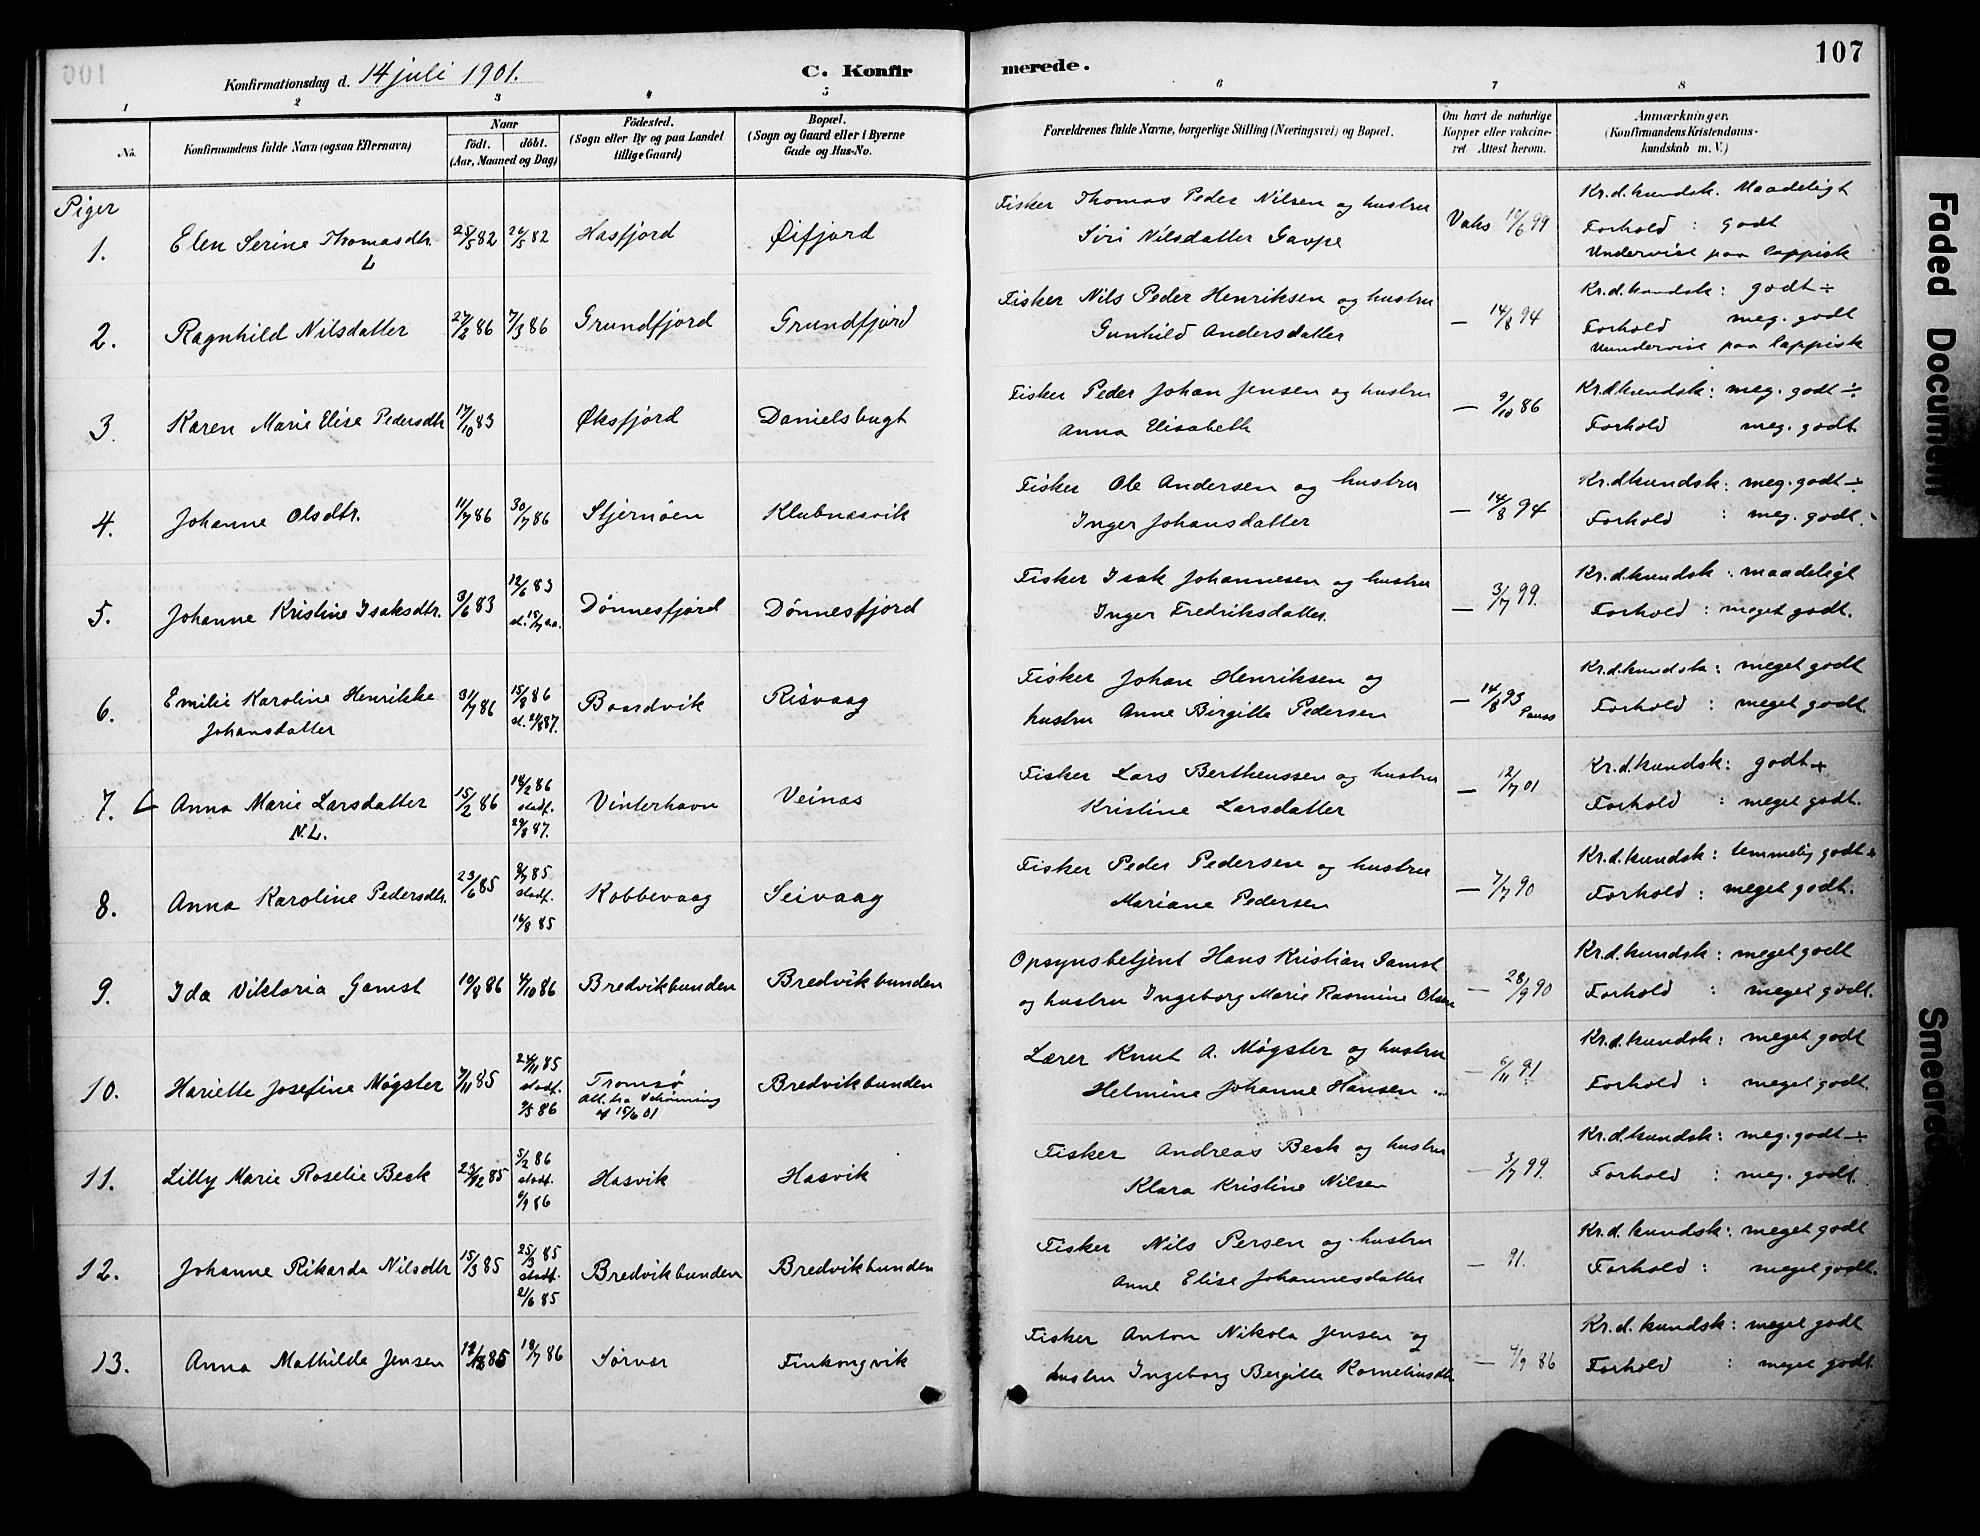 107
Konfirmationsdag d. 14 juli 1901.
C. Konfirmerede.
1 2 3 4 5 6 7 8
No.
Konfirmandens fulde Navn (ogsaa Efternavn)
Naar
födt. döbt.
(Aar, Maaned og Dag)
Födested.
(Sogn eller By og paa Landet
tillige Gaard)
Bopæl.
(Sogn og Gaard eller i Byerne
Gade og Hus-No.
Forældrenes fulde Navne, borgerlige Stilling (Næringsvei) og Bopæl.
Om havt de naturlige
Kopper eller vakcine-
ret Attest herom.
Anmærkninger.
(Konfirmandens Kristendoms-
kundskab m. V.)
Piger
1. Elen Serine Thomasdtr. 25/5 82 26/5 82 Hasfjord Øifjord
L
Fisker Thomas Peder Nilsen og hustru
Siri Nilsdatter Gaupe
Vaks 17/6 99
Kr.d.kundsk. Maadeligt
Forhold : godt
Undervist paa lappisk
2. Ragnhild Nilsdatter 27/2 86 7/3 86 Grundfjord Grundfjord
Fisker Nils Peder Henriksen og hustru
Gunhild Andersdatter
— 14/8 94
Kr.d.kundsk: godt ÷
Forhold meg. godt
Undervist paa lappisk
3. Karen Marie Elise Pedersdtr 17/10 83 Øksfjord Danielsbugt
Fisker Peder Johan Jensen og hustru
Anna Elisabeth
— 9/10 86
Kr.dkundsk: meg. godt ÷
Forhold meg. godt.
4. Johanne Olsdtr. 11/7 86 30/7 86 Stjernöen Klubnæsvik
Fisker Ole Andersen og hustru
Inger Johansdatter
— 14/8 94
Kr.dkundsk: meg. godt ÷
Forhold : meg. godt.
5. Johanne Kristine Isaksdtr. 3/6 83 12/6 83 Dönnesfjord Dönnesfjord
st. 15/7 s.a.
Fisker Isak Johannesen og hustru
Inger Fredriksdatter.
— 3/7 99.
Kr.d.kundsk: maadeligt
Forhold : meget godt.
6. Emilie Karoline Henrikke 31/7 86 15/8 86 Baardvik Risvaag
Johansdatter
Fisker Johan Henriksen og
hustru Anne Birgitte Pedersen
— 14/8 93
Kr.d.kundsk: meget godt
Forhold : meget godt.
7. L Anna Marie Larsdatter 15/2 86 18/2 86 Vinterhavn Veinæs
N.L.
stadf.
29/8 87.
Fisker Lars Bertheussen og hustru
Kristine Larsdatter
— 12/7 01
Kr.d.kundsk: godt+
Forhold : meget godt.
8. Anna Karoline Pedersdtr. 23/6 85 9/7 85 Kobbevaag Seivaag
stadf.
16/8 85
Fisker Peder Pedersen og hustru
Mariane Pedersen
— 7/7 90
Kr.d.kundsk: temmelig godt+
Forhold : meget godt.
9. Ida Viktoria Gamst 19/8 86 4/10 86 Bredvikbunden Bredvikbunden
Opsynsbetjent Hans Kristian Gamst
og hustru Ingeborg Marie Rasmine Olsen
— 28/9 90
Kr.d.kundsk: meget godt
Forhold : meget godt.
10. Hariette Josefine Møgster 7/11 85 24/11 85 Tromsø Bredvikbunden
stadf.
9/5 86
Att. fra Schönning
af 15/6 01
Lærer Knut A. Møgster og hustru
Helmine Johanne Hansen
— 6/11 91
Kr.d.kundsk: meget godt
Forhold : meget godt.
11. Lilly Marie Roselie Beck 23/12 85 5/2 86 Hasvik Hasvik
stadf.
6/9 86
Fisker Andreas Beck og hustru
Klara Kristine Nilsen
— 3/7 99.
Kr.d.kundsk: meg. godt ÷
Forhold : meg. godt.
12. Johanne Rikarda Nilsdtr 15/3 85 25/3 85 Bredvikbunden Bredvikbunden
stadf.
21/6 85
Fisker Nils Persen og hustru
Anne Elise Johannesdatter
— 91.
Kr.d.kundsk: meget godt
Forhold : meget godt.
13. Anna Mathilde Jensen 85 18/7 86 Sørvær Finkongvik
Fisker Anton Nikola Jensen og
hustru Ingeborg Bergitte Korneliusdtr
— 4/9 86
Kr.d.kundsk: meget godt
Forhold : meget godt.
Faded Document
Smeared